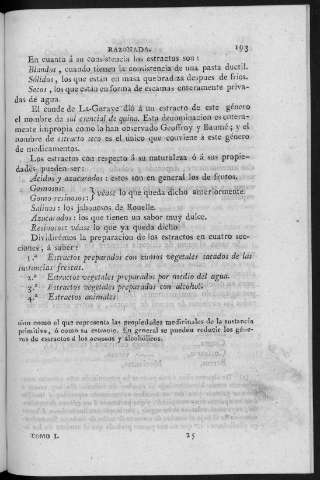 RAZONADA. 193
En cuanto á su consistencia los estractos son:
Blandos, cuando tienen la consistencia de una pasta ductil.
Sólidos, los que están en masa quebradiza despues de frios.
Secos, los que están en forma de escamas enteramente priva-
das de agua.
El conde de La-Garaye dió á un estracto de este género
el nombre de sal esencial de quina. Esta denominacion es entera-
mente impropia como lo han observado Geoffroy y Baumé; y el
nombre de estracto seco es el único que conviene á este género
de medicamentos.
Los estractos con respecto á su naturaleza ó á sus propie-
dades pueden ser:
Acidos y azucarados: estos son en general los de frutos.
Gomosos:
Gomo-resinosos: } véase lo que queda dicho anteriormente.
Salinos: los jabonosos de Rouelle.
Azucarados: los que tienen un sabor muy dulce.
Resinosos: véase lo que ya queda dicho.
Dividirémos la preparacion de los estractos en cuatro sec-
ciones, á saber:
1.ª Estractos preparados con zumos vegetales sacados de las
sustancias frescas.
2.ª Estractos vegetales preparados por medio del agua.
3.ª Estractos vegetales preparados con alcohol.
4.ª Estractos animales.
sino como el que representa las propiedades medicinales de la sustancia
primitiva, ó como su estracto. En general se pueden reducir los géne-
ros de estractos á los acuosos y alcohólicos.
TOMO I. 25